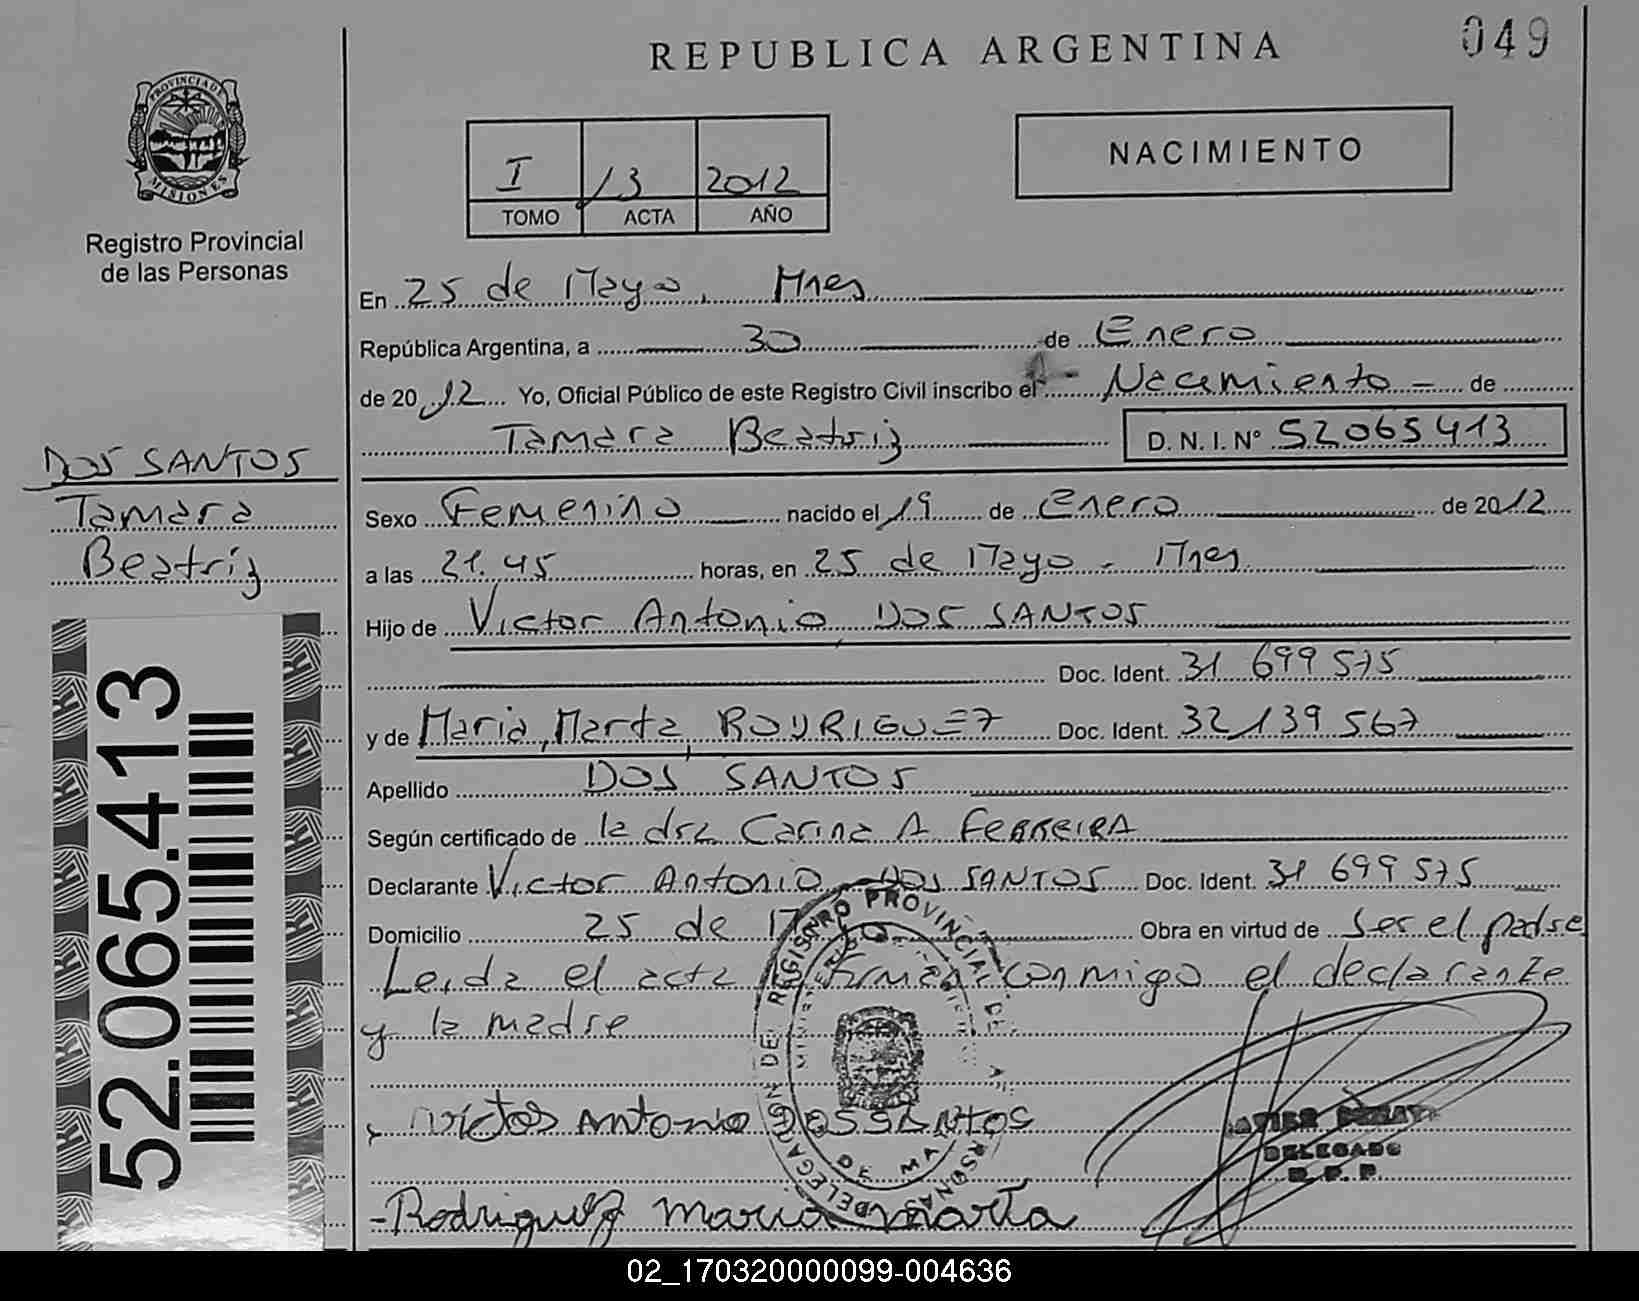 REPUBLICA ARGENTINA
049
PROVINCIA DE
MISIONES
Registro Provincial
de las Personas
I 13 2012
TOMO ACTA AÑO
NACIMIENTO
En 25 de Mayo, Mnes
República Argentina, a 30 de Enero
de 2012 Yo, Oficial Público de este Registro Civil inscribo el Nacimiento - de
Tamara Beatriz D.N.I. Nº 52065413
DOS SANTOS
Tamara
Beatriz
52.065.413
Sexo Femenino nacido el 19 de Enero de 2012
a las 21.45 horas, en 25 de Mayo - Mnes
Hijo de Victor Antonio DOS SANTOS
Doc. Ident. 31 699 575
y de Maria Marta RODRIGUEZ Doc. Ident. 32139567
Apellido DOS SANTOS
Según certificado de la dra Carina A FERREIRA
Declarante Victor Antonio DOS SANTOS Doc. Ident. 31 699 575
Domicilio 25 de Obra en virtud de Ser el padre
Leida el acta firman conmigo el declarante
y la madre
Victor Antonio DOS SANTOS
DELEGADO
R. P. P.
Rodriguez maria marta
REGISTRO PROVINCIAL DE
02_170320000099-004636